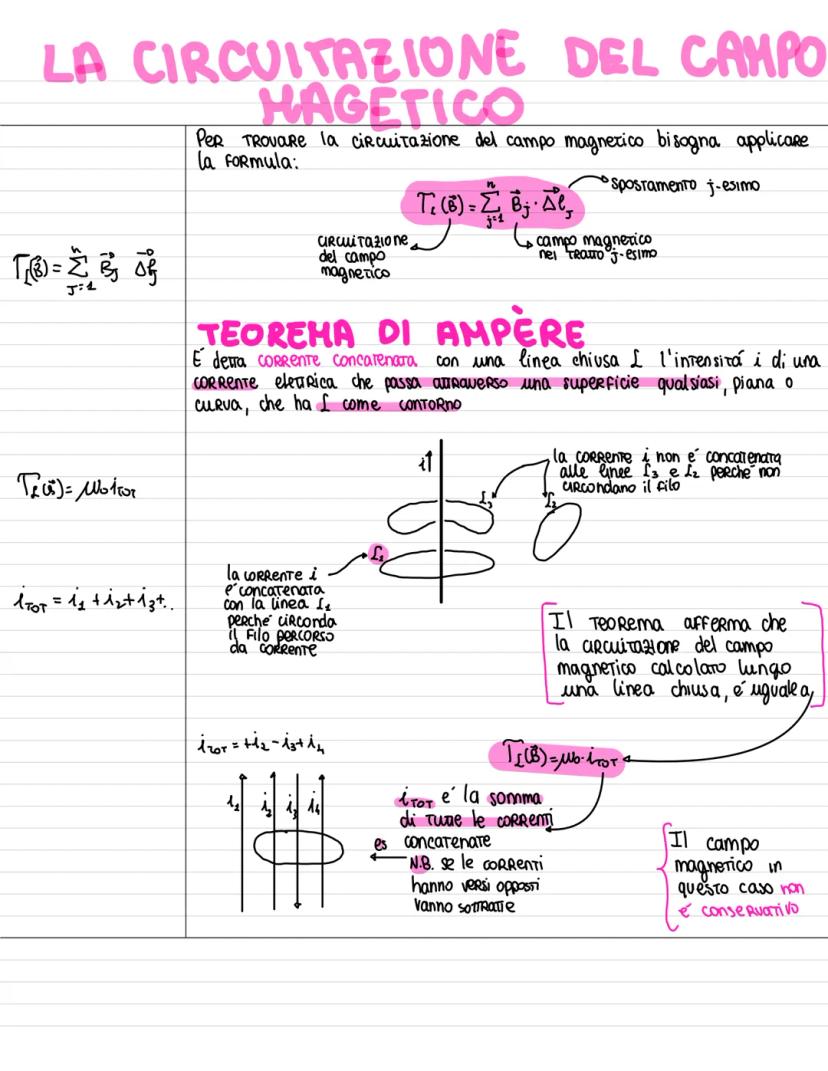 LA CIRCUITAZIONE DEL CAMPO
MAGETICO
PER TROVARE la CIRCUITAZIONE del campo magnetico bisogna applicare
la FORMULA:
Γ_L(B⃗) = Σ_{j=1}^{n} B⃗_j · Δl⃗_j
spostamento j-esimo
circuitazione
del campo
magnetico
campo magnetico
nel tratto j-esimo
Γ_L(B⃗) = Σ_{J=1}^{n} B⃗_J Δl⃗_J
TEOREMA DI AMPÈRE
É detta CORRENTE CONCATENATA con una linea chiusa L l'intensitá i di una
CORRENTE elettrica che passa attraverso una superficie qualsiasi, piana o
curva, che ha L come contorno
i
la CORRENTE i non é concatenata
alle linee L₃ e L₂ perché non
circondano il filo
L₃
L₂
L₁
Γ_L(B⃗) = μ₀ i_TOT
la CORRENTE i
é concatenata
con la linea L₁
perché circonda
il filo percorso
da corrente
i_TOT = i₁ + i₂ + i₃ + ..
Il TEOREMA AFFERMA che
la circuitazione del campo
magnetico calcolato lungo
una linea chiusa, é uguale a
Γ_L(B⃗) = μ₀ · i_TOT
i_TOT = + i₂ - i₃ + i₄
i₁ i₂ i₃ i₄
i_TOT é la somma
di tutte le correnti
es concatenate
N.B. se le correnti
hanno versi opposti
vanno sottratte
Il campo
magnetico in
questo caso non
é conservativo